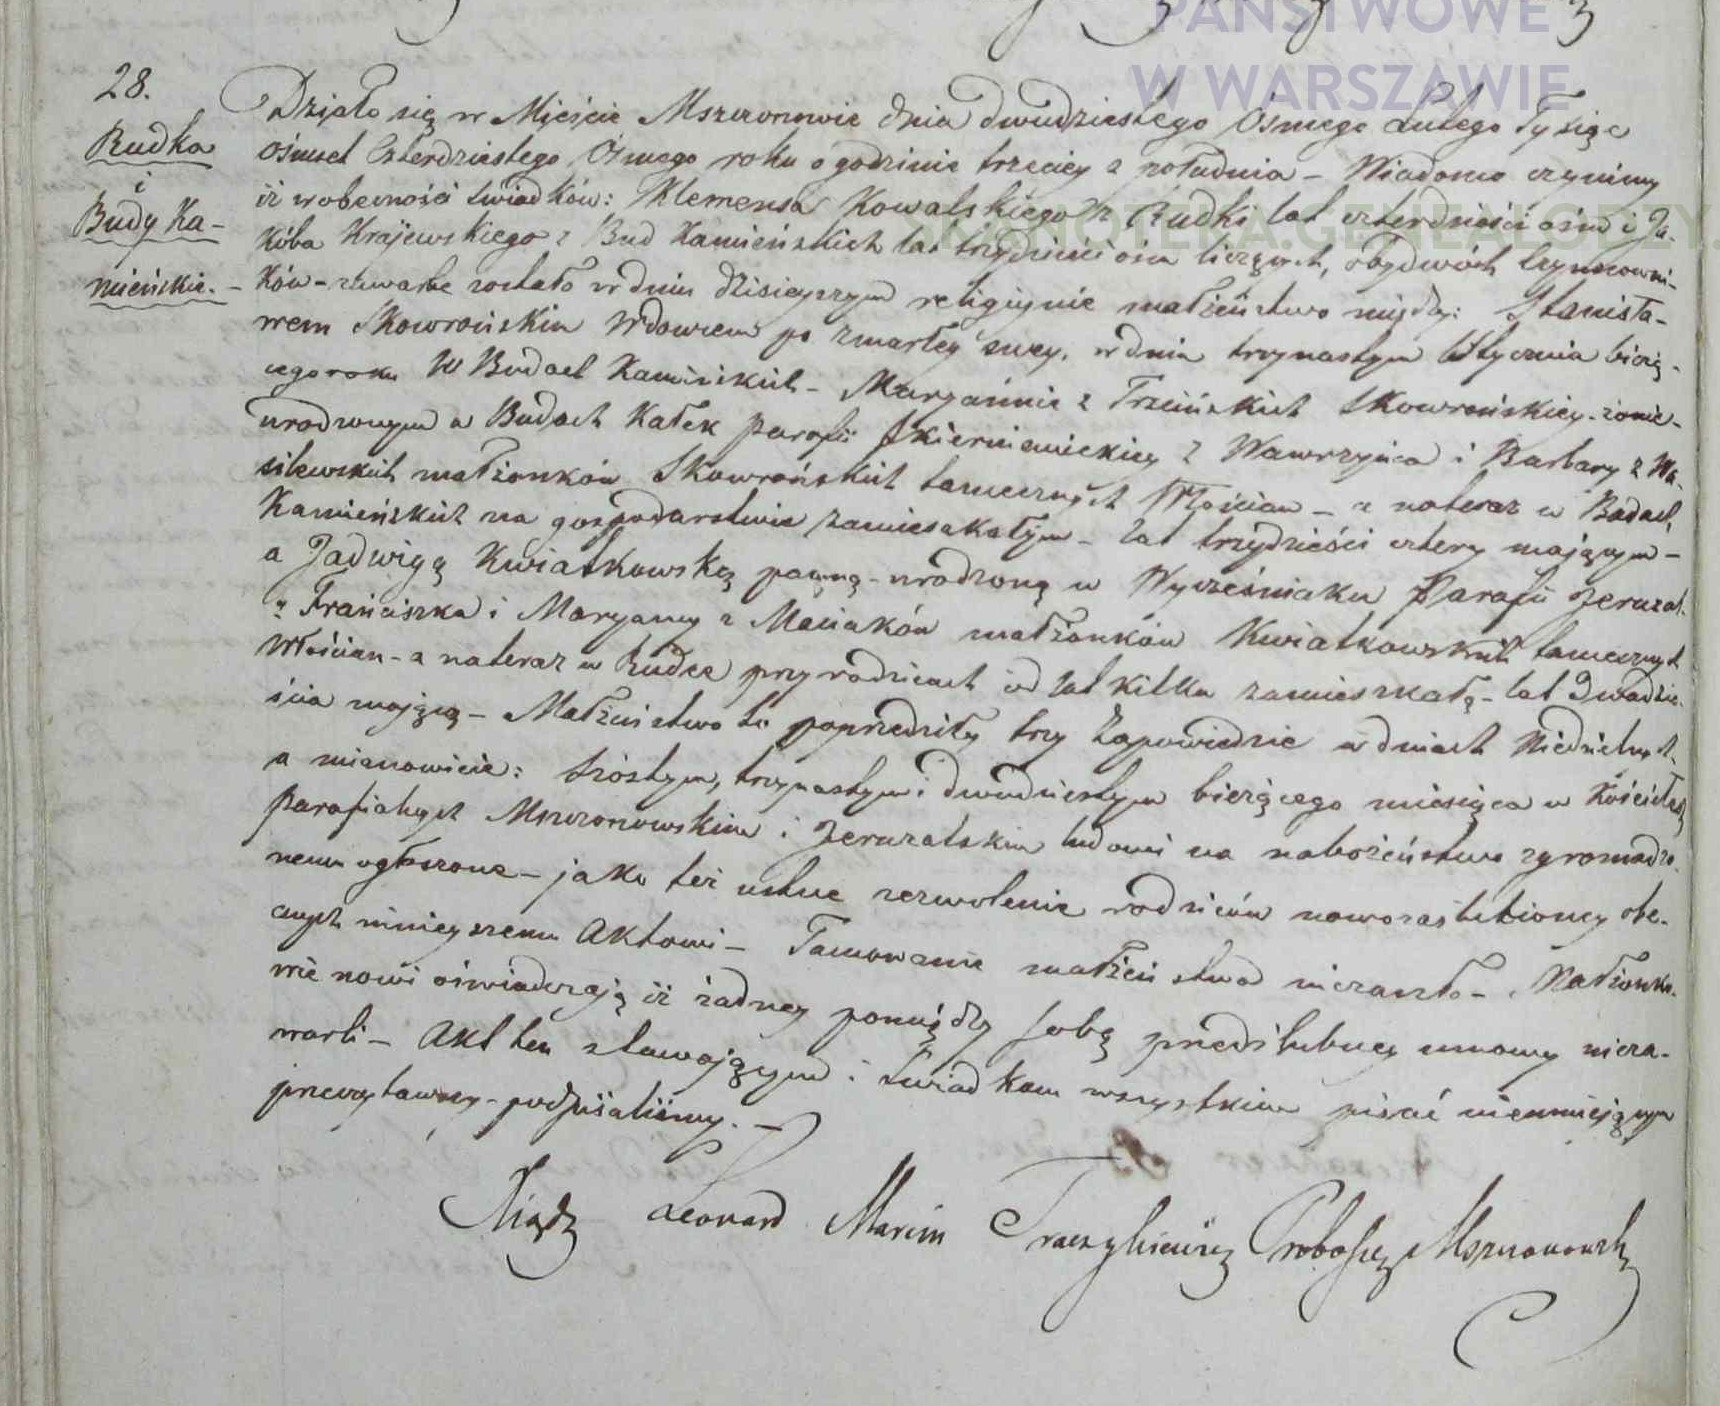 PAŃSTWOWE
W WARSZAWIE
28.
Rudka
i
Budy Ka-
mieńskie. -
Działo się w Mieście Mszczonowie dnia dwudziestego Osmego Lutego Tysiąc
Ośmset Czterdziestego Osmego roku o godzinie trzeciey z południa - Wiadomo czynimy
iż w obecności świadków: Klemensa Kowalskiego z Rudki lat czterdzieści ośm i Ja-
kóba Krajewskiego z Bud Kamieńskich lat trzydzieści ośm liczących, obydwóch
ków - zawarte zostało w dniu dzisieyszym religiynie małżeństwo między: Stanisła-
wem Skowrońskim Wdowcem po zmarłey swey, w dniu trzynastym Stycznia bieżą-
cego roku W Budach Kamińskich - Maryannie z Trzcińskich Skowrońskiey - żonie -
urodzonym w Budach Kałek parafii Skierniewickiey z Wawrzyńca i Barbary z Wa-
silewskich małżonków Skowrońskich tamecznych Włościan - a na teraz w Budach
Kamieńskich na gospodarstwie zamieszkałym - lat trzydzieści cztery mającym -
a Jadwigą Kwiatkowską panną - urodzoną w Wycześniaku Parafii Jeruzal-
z Franciszka i Maryanny z Maciaków małżonków Kwiatkowskich tamecznych
Włościan - a na teraz w Rudce przy rodzicach od lat kilku zamieszkałą - lat Dwadzie-
ścia mającą - Małżeństwo to poprzedziły trzy Zapowiedzie w dniach Niedzielnych -
a mianowicie: szóstym, trzynastym i dwudziestym bieżącego miesiąca w Kościołach
parafialnych Mszczonowskim i Jeruzalskim ludowi na nabożeństwo zgromadzo-
nemu ogłoszone - jako też ustne zezwolenie rodziców nowozaślubioney obe-
cnych ninieyszemu Aktowi - Tamowanie małżeństwa niezaszło - Małżonko-
wie nowi oświadczają iż żadney pomiędzy sobą przedślubney umowy nieza-
warli - Akt ten stawającym i świadkom wszystkim pisać nieumiejącym
przeczytawszy - podpisaliśmy. -
Xiądz Leonard Marcin Proboszcz Mszczonowski